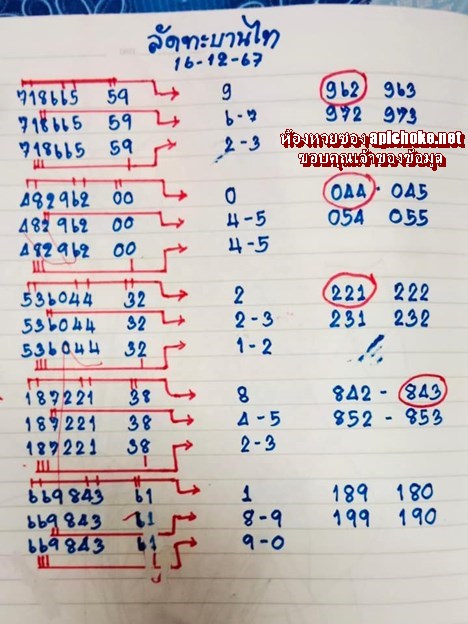 ลัดทะบานไท
16-12-67
718665 59 9 962 963
718665 59 6-7 972 973
718665 59 2-3
ห้องหวยซอง apichoke.net
ขอบคุณเจ้าของข้อมูล
482962 00 0 044 · 045
482962 00 4-5 054 055
482962 00 4-5
536044 32 2 221 222
536044 32 2-3 231 232
536044 32 1-2
187221 38 8 842 - 843
187221 38 4-5 852 - 853
187221 38 2-3
669843 61 1 189 180
669843 61 8-9 199 190
669843 61 9-0